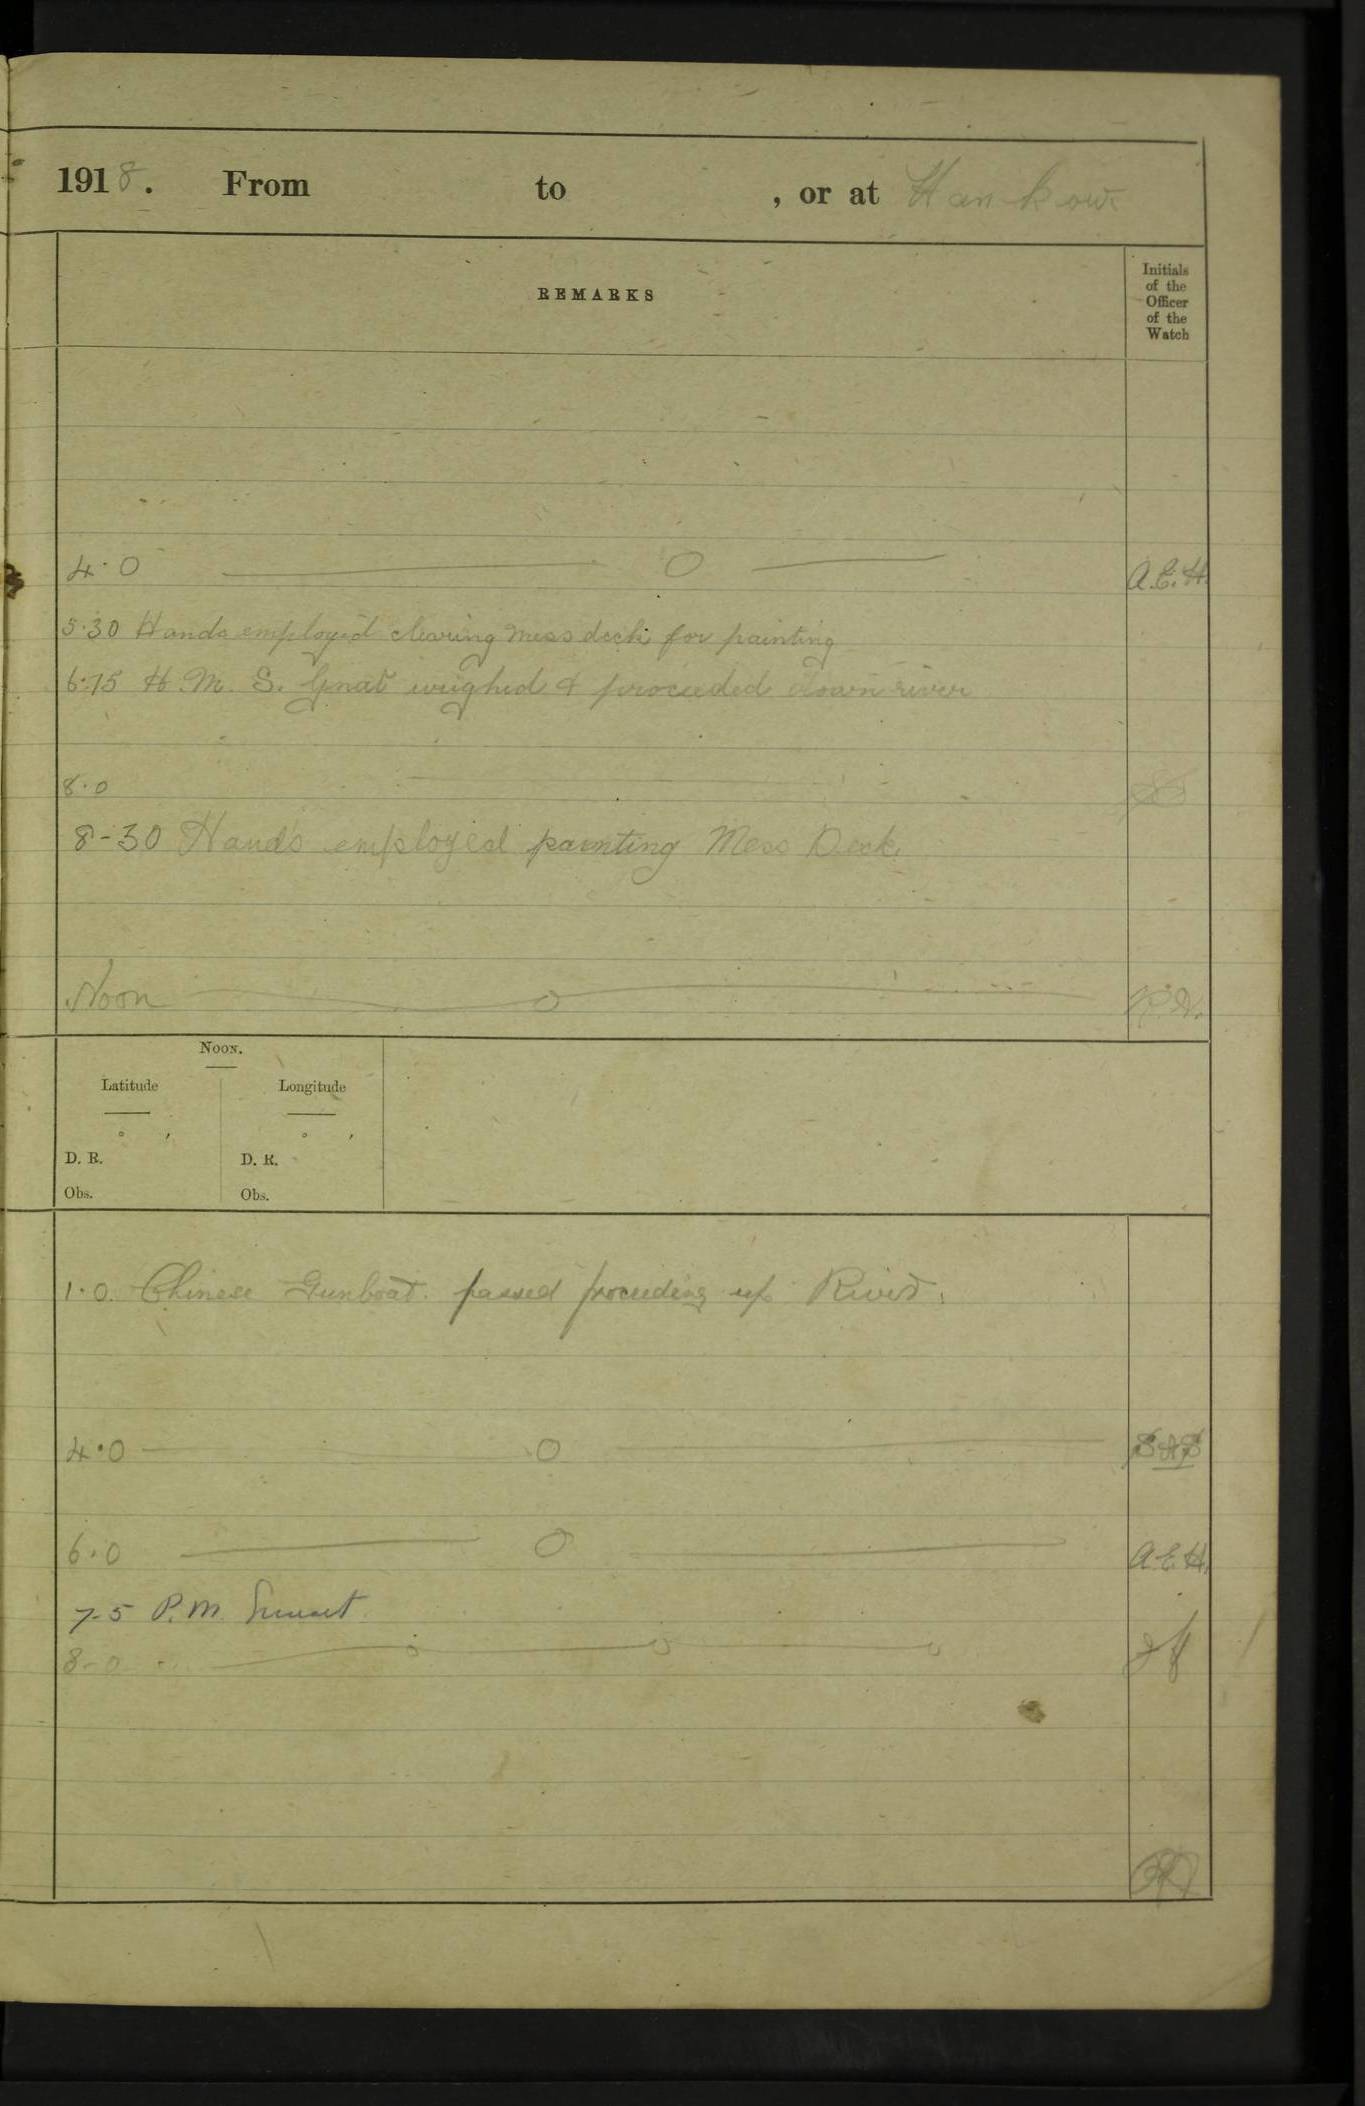 1918. From to , or at Hankow
REMARKS
Initials
of the
Officer
of the
Watch
4.0 O A.E.H.
5.30 Hands employed clearing mess deck for painting
6.15 H.M.S. Gnat weighed & proceeded down river
8.0
8-30 Hands employed painting Mess Deck.
Noon
NOON.
Latitude Longitude
° ′ ° ′
D. R. D. R.
Obs. Obs.
1.0. Chinese Gunboat. passed proceeding up River.
4.0 O
6.0 O A.E.H.
7-5 P.M Sunset
8-0